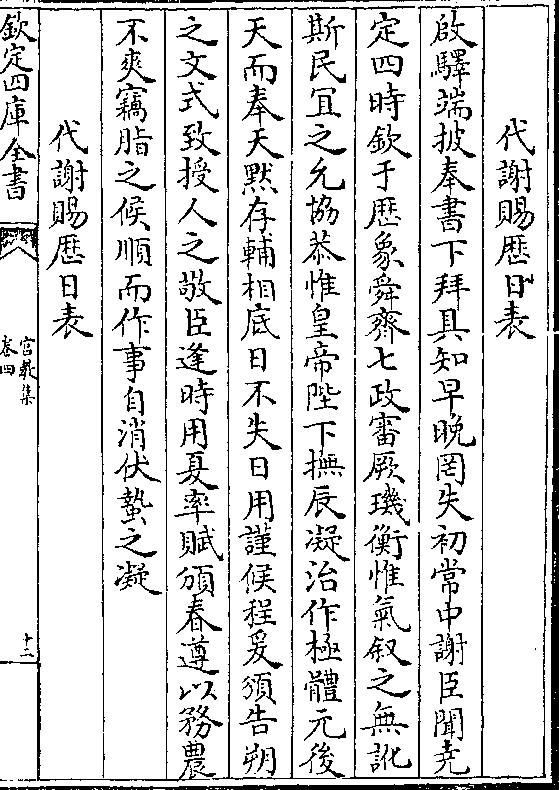 代謝賜歴日表
啟驛端披奉書下拜具知早晚罔失初常中謝臣聞堯
定四時欽于歴象舜齊七政審厥璣衡惟氣叙之無訛
斯民冝之允協恭惟皇帝陛下撫辰凝治作極體元後
天而奉天黙存輔相底日不失日用謹候程爰頒告朔
之文式致授人之敬臣逢時用夏率賦頒春遵以務農
不爽竊脂之候順而作事自消伏蟄之凝
代謝賜歴日表
欽定四庫全書
宫教集
卷四
十二